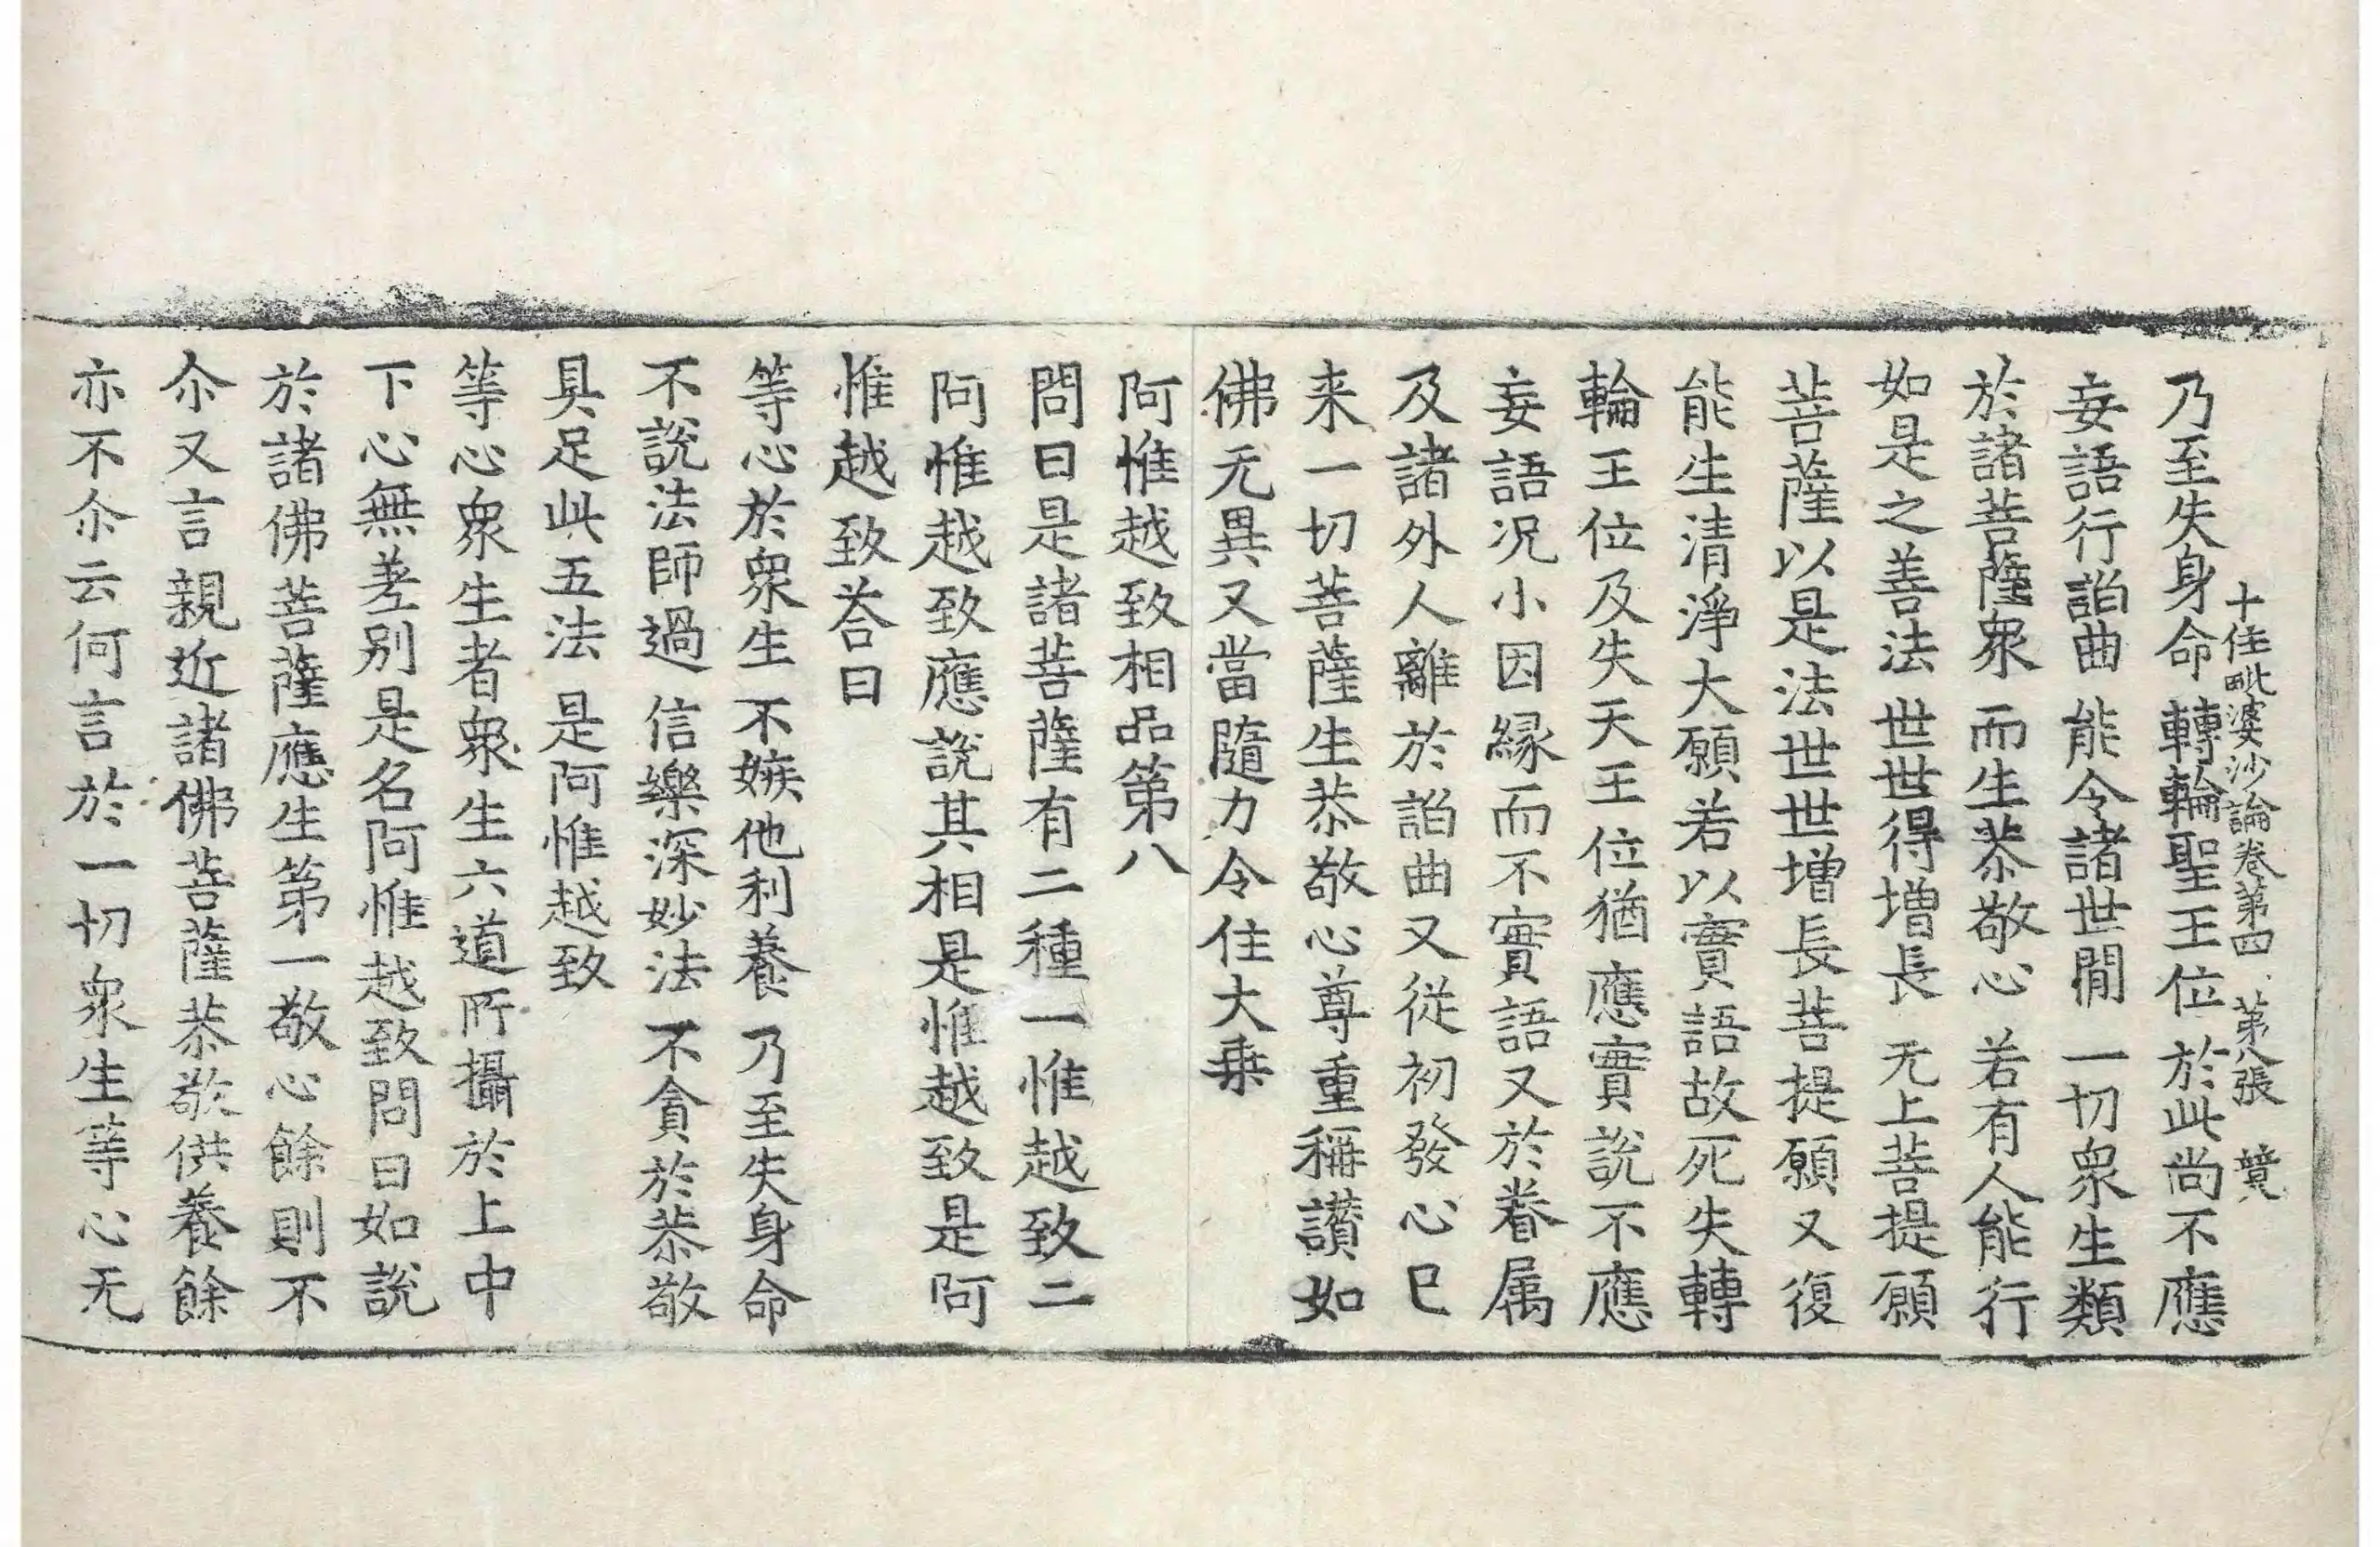 十住毗婆沙論卷第四 第八張
乃至失身命 轉輪聖王位 於此尚不應
妄語行諂曲 能令諸世閒 一切衆生類
於諸菩薩衆 而生恭敬心 若有人能行
如是之善法 世世得增長 无上菩提願
菩薩以是法世世增長菩提願又復
能生清淨大願若以實語故死失轉
輪王位及失天王位猶應實說不應
妄語况小因緣而不實語又於眷属
及諸外人離於諂曲又從初發心巳
来一切菩薩生恭敬心尊重稱讃如
佛无異又當隨力令住大乗
阿惟越致相品第八
問曰是諸菩薩有二種一惟越致二
阿惟越致應說其相是惟越致是阿
惟越致荅曰
等心於衆生 不嫉他利養 乃至失身命
不說法師過 信樂深妙法 不貪於恭敬
具足此五法 是阿惟越致
等心衆生者衆生六道所攝於上中
下心無差别是名阿惟越致問曰如說
於諸佛菩薩應生第一敬心餘則不
尒又言親近諸佛菩薩恭敬供養餘
亦不尒云何言於一切衆生等心无